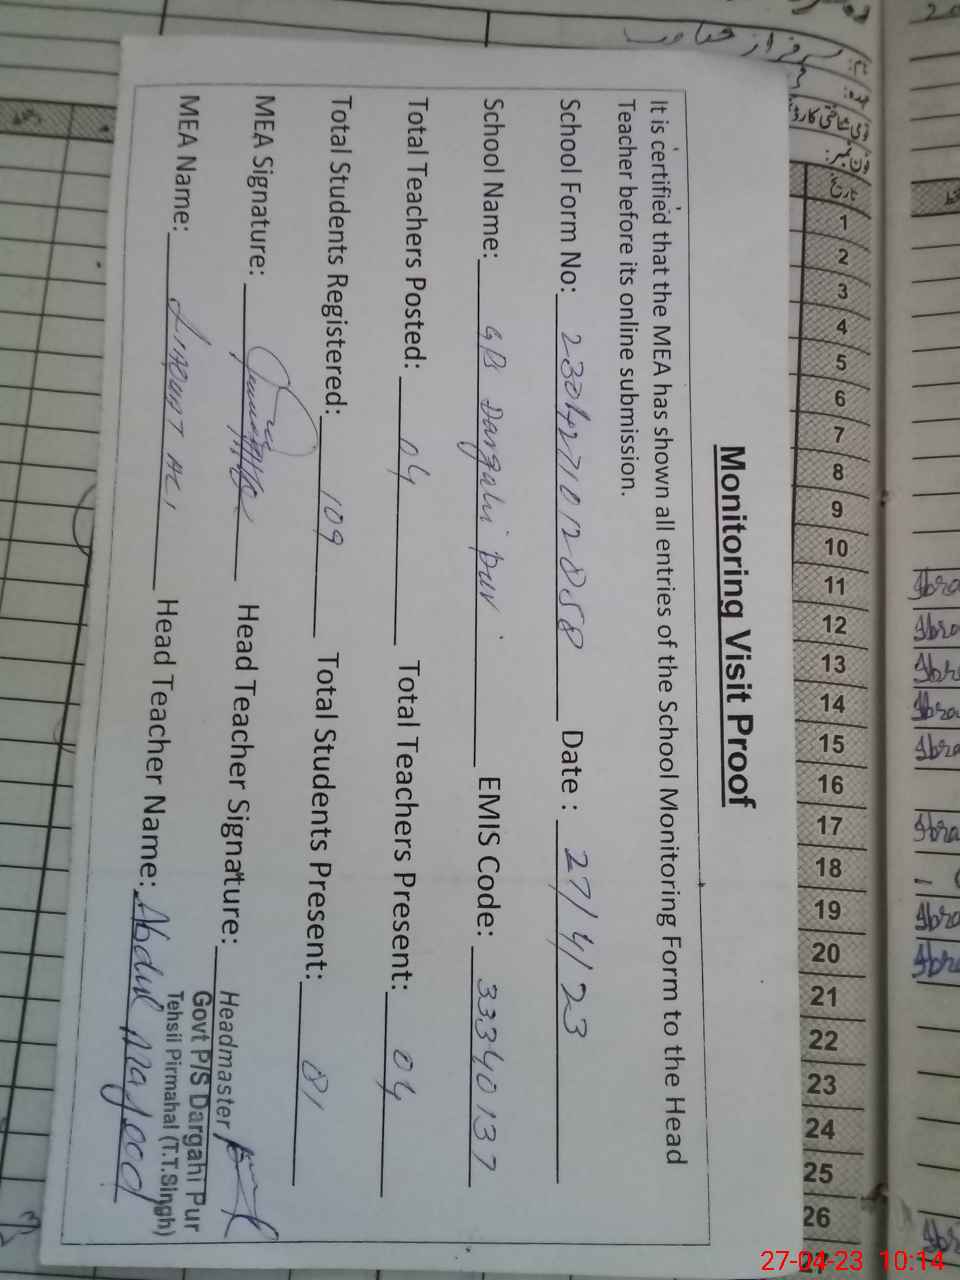 Monitoring Visit Proof
It is certified that the MEA has shown all entries of the School Monitoring Form to the Head
Teacher before its online submission.
School Form No: 2304271012858 Date : 27/4/23
School Name: GPS Dargahi pur EMIS Code: 33340137
Total Teachers Posted: 04 Total Teachers Present: 04
Total Students Registered: 109 Total Students Present: 81
MEA Signature: Head Teacher Signature: Headmaster
Govt P/S Dargahi Pur
Tehsil Pirmahal (T.T.Singh)
MEA Name: Head Teacher Name: Abdul Majeed
تاریخ
1
2
3
4
5
6
7
8
9
10
11
12
13
14
15
16
17
18
19
20
21
22
23
24
25
26
27
27-04-23 10:14